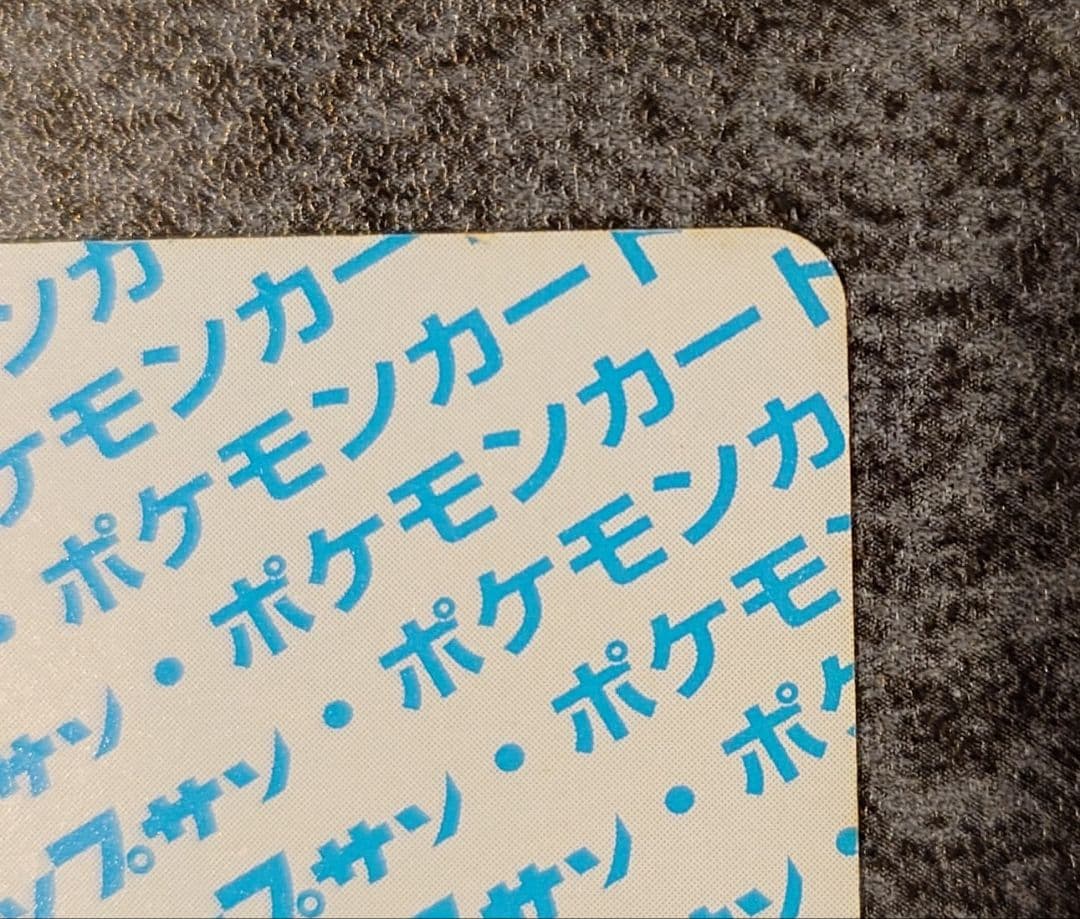 ンカ
ケモンカー
・ポケモンカー
サン・ポケモンカー
プサン・ポケモンカ
プサン・ポケモ
サン・ポ
ン・